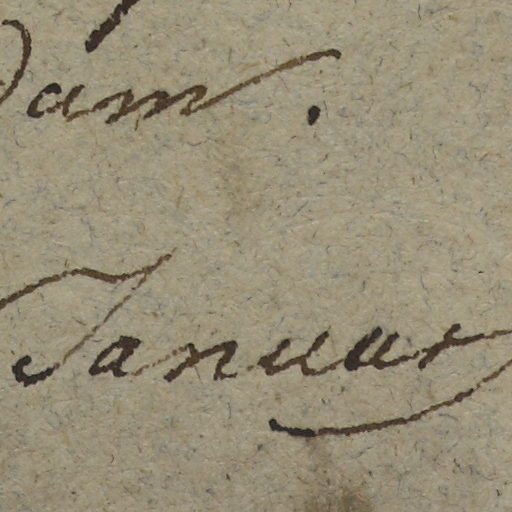 dam.
Januar